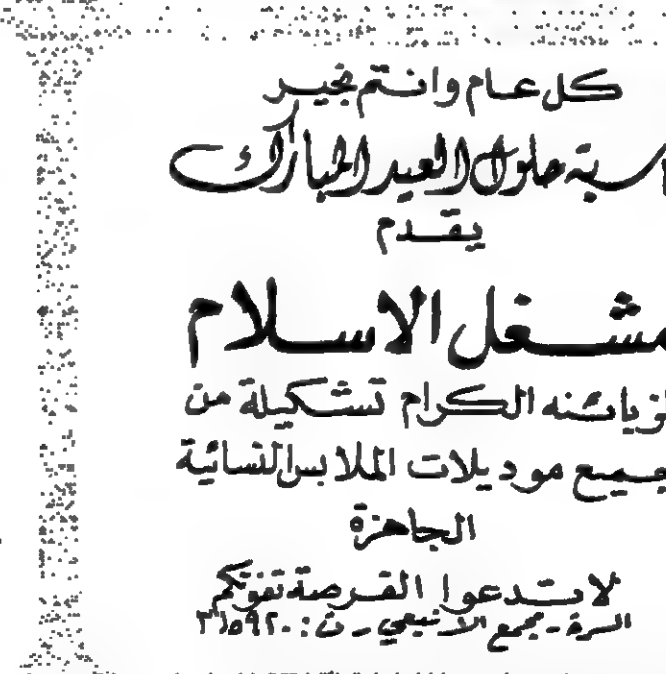 كل عام وانتم بخير
اسبة حلول العيد المبارك
يقدم
مشغل الاسلام
لزبائنه الكرام تشكيلة من
جميع موديلات الملابس النسائية
الجاهزة
لا تدعوا الفرصة تفوتكم
السرة - مجمع الانبعي - ت :